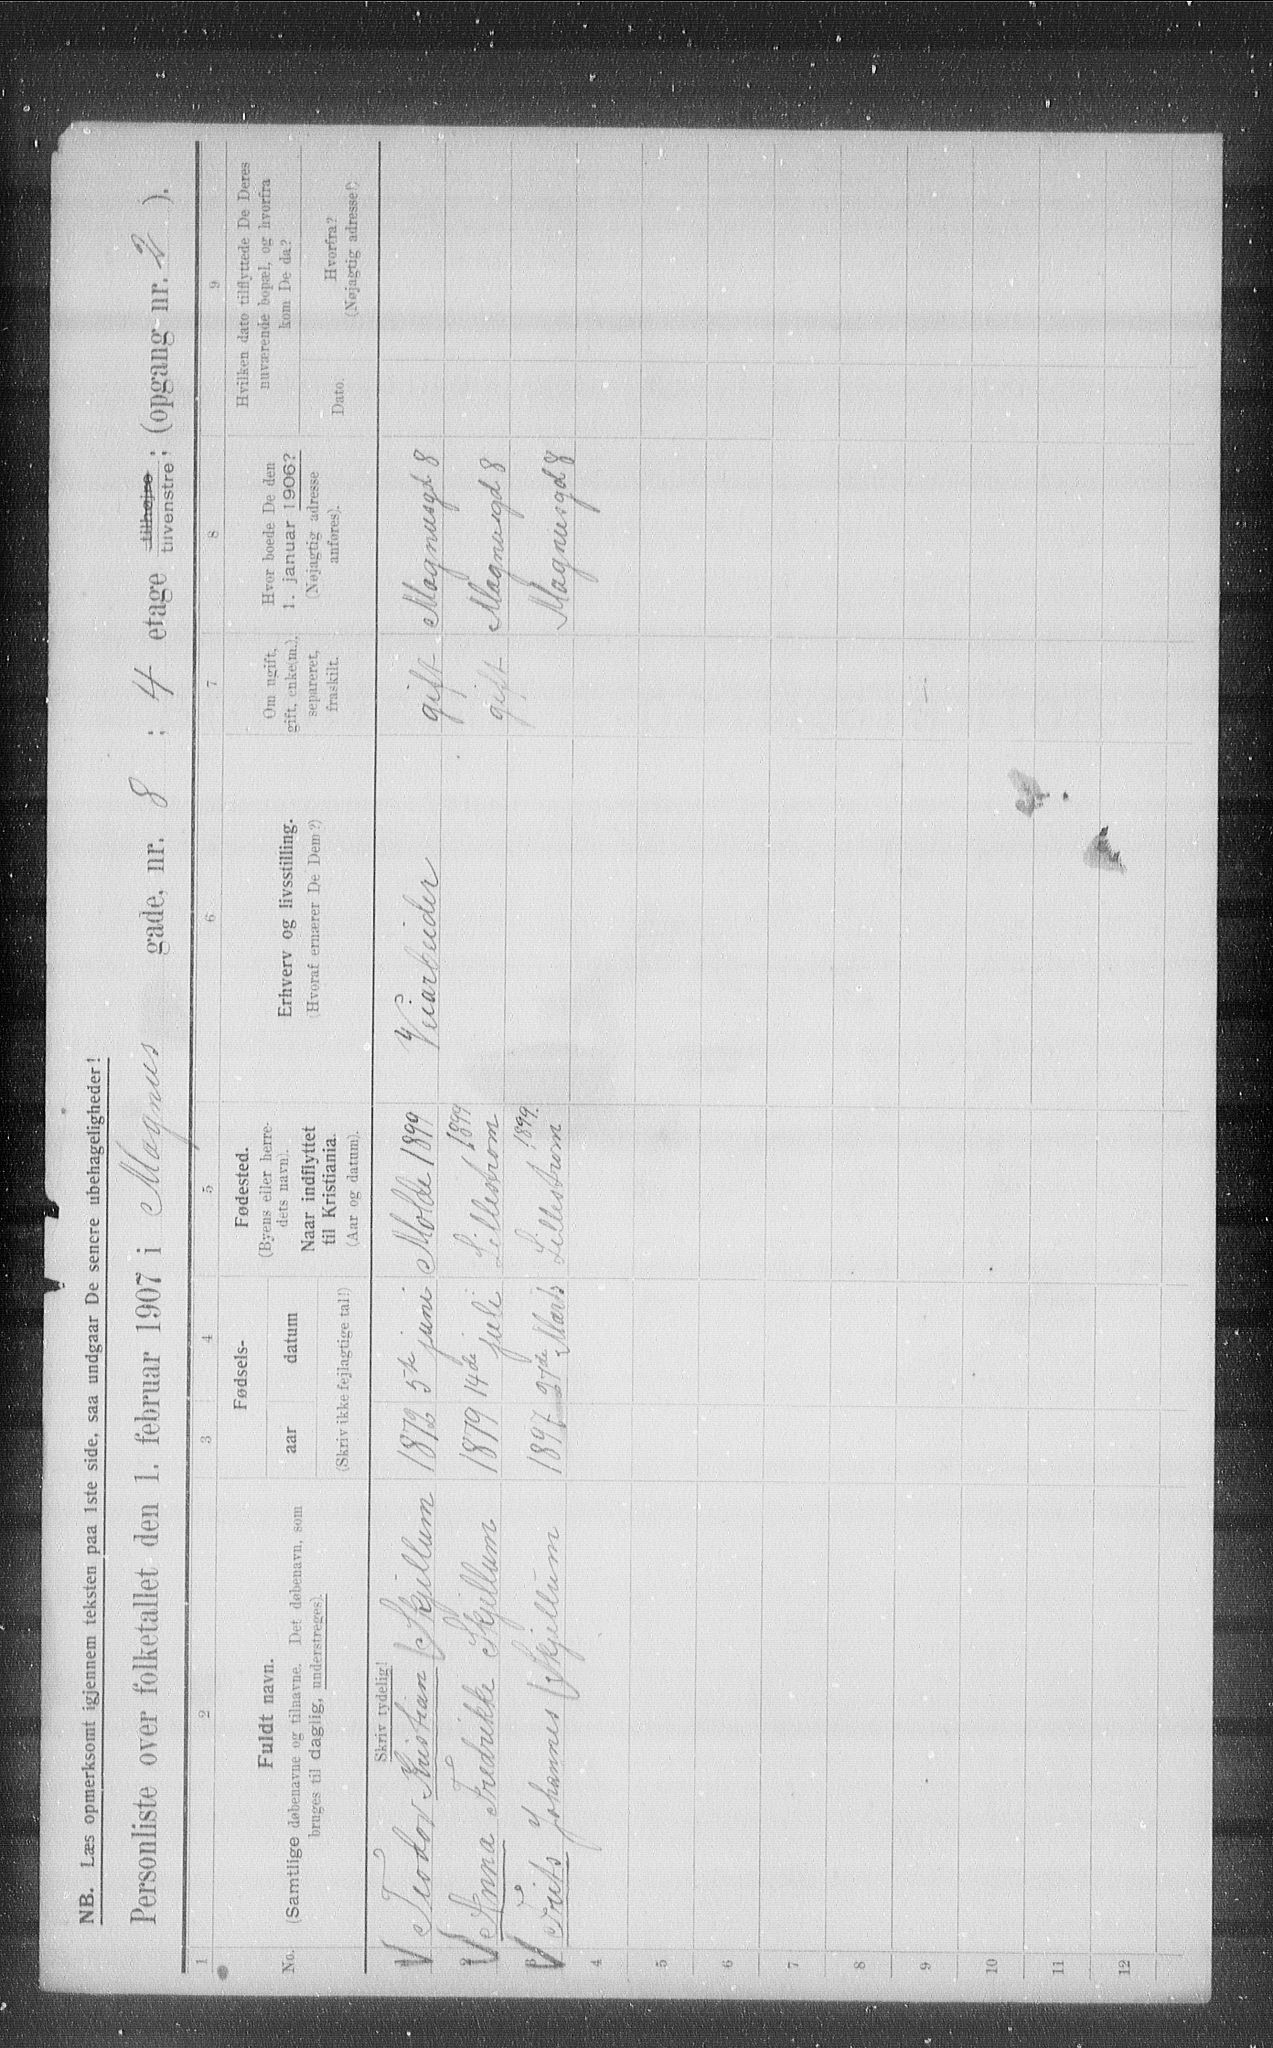 NB. Læs opmerksomt igjennem teksten paa 1ste side, saa undgaar De senere ubehageligheder!
Personliste over folketallet den 1. februar 1907 i Magnus gade, nr. 8 ; 4 etage tilhøjre tilvenstre; (opgang nr. 2 ).
1 2 3 4 5 6 7 8 9
No.
Fuldt navn.
(Samtlige døbenavne og tilnavne. Det døbenavn, som
bruges til daglig, understreges).
Fødsels-
aar datum
(Skriv ikke fejlagtige tal!)
Fødested.
(Byens eller herre-
dets navn).
Naar indflyttet
til Kristiania.
(Aar og datum).
Erhverv og livsstilling.
(Hvoraf ernærer De Dem?)
Om ugift,
gift, enke(m.),
separeret,
fraskilt.
Hvor boede De den
1. januar 1906?
(Nøjagtig adresse
anføres).
Hvilken dato tilflyttede De Deres
nuværende bopæl, og hvorfra
kom De da?
Dato.
Hvorfra?
(Nøjagtig adresse!)
Skriv tydelig!
1 Teodor Kristian Skjillum 1872 5te juni Molde 1899 Veiarbeider gift Magnusgd 8
2 Anna Fredrikke Skjillum 1879 14de juli Lillestrøm 1899 gift Magnusgd 8
3 Frits Johannes Skjillum 1897 27de Marts Lillestrøm 1899. Magnusgd 8
4
5
6
7
8
9
10
11
12